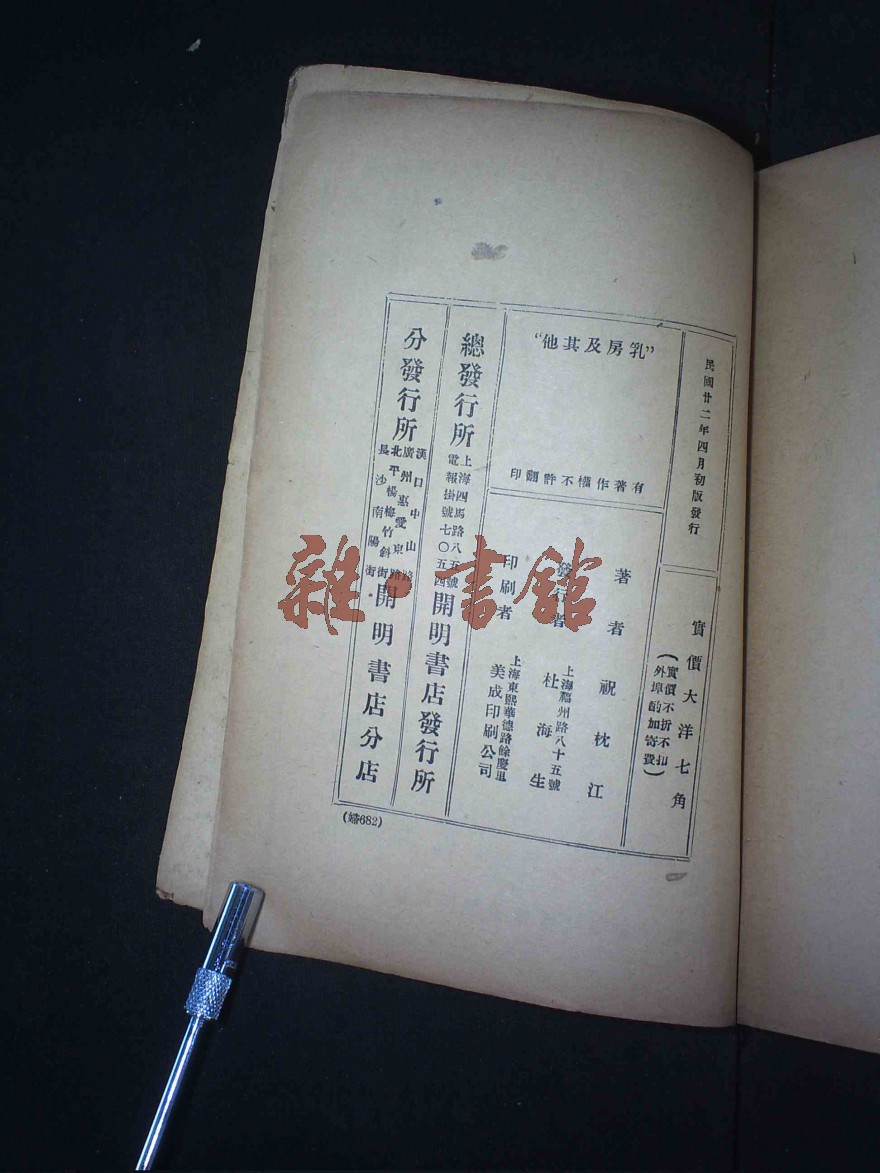 民國廿二年四月初版發行
實價大洋七角
(實價不折不扣
外埠酌加寄費)
“乳房及其他”
有著作權不許翻印
著者 祝枕江
發行者 杜海生
上海福州路八十五號
印刷者 美成印刷公司
上海東熙華德路餘慶里
總發行所
上海四馬路八五號
電報掛號七〇五四
開明書店發行所
分發行所
漢口中山路
廣州惠愛東路
北平楊梅竹斜街
長沙南陽街
開明書店分店
682)
雜·書館